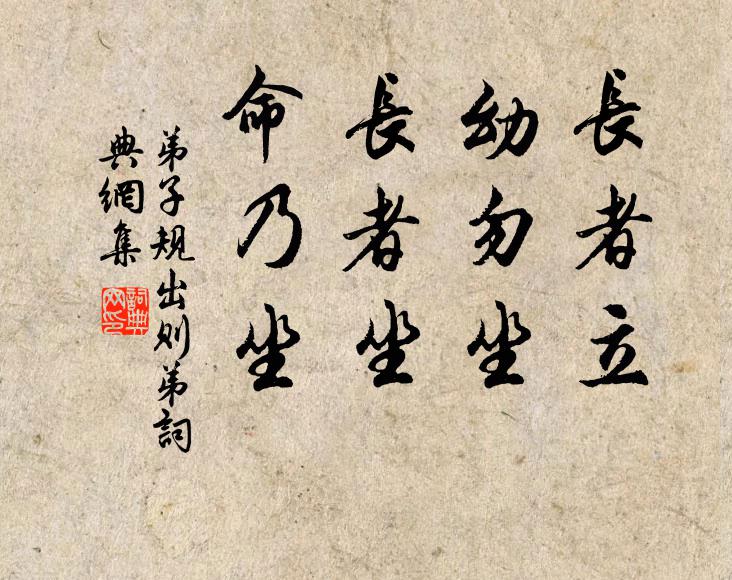 長者立
幼勿坐
長者坐
命乃坐
弟子規出則弟詞
典網集
詞典
网印